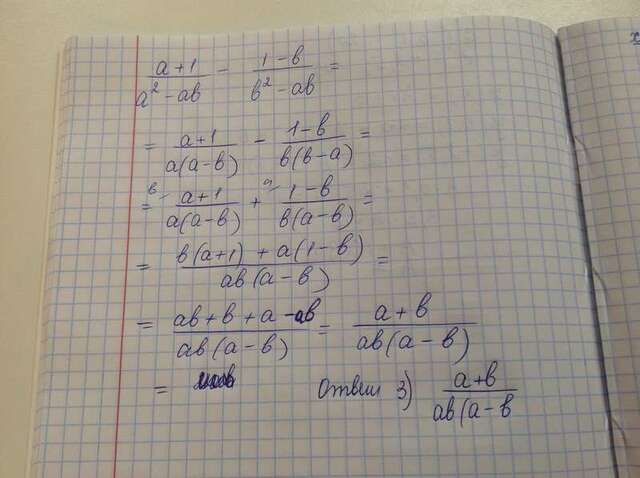 (a+1)/(a²-ab) - (1-b)/(b²-ab) =
= (a+1)/(a(a-b)) - (1-b)/(b(b-a)) =
= ᵇ⁄ (a+1)/(a(a-b)) + ᵃ⁄ (1-b)/(b(a-b)) =
= (b(a+1)+a(1-b))/(ab(a-b)) =
= (ab+b+a-ab)/(ab(a-b)) = (a+b)/(ab(a-b))
= Ответ 3) (a+b)/(ab(a-b
x